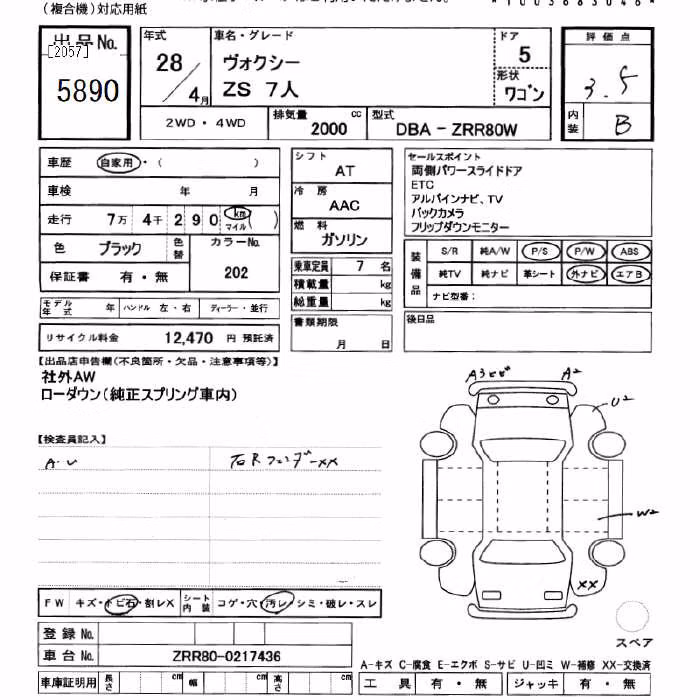 (複合機)対応用紙
出品No.
[2057]
5890
年式
28/4月
車名・グレード
ヴォクシー
ZS 7人
ドア
5
形状
ワゴン
評価点
3.5
内装
B
2WD・4WD
排気量
2000 cc
型式
DBA-ZRR80W
車歴 自家用・( )
車検 年 月
走行 7万 4千 2 9 0 km マイル ( )
色 ブラック 色替 カラーNo.
保証書 有・無 202
モデル年式 年 ハンドル 左・右 ディーラー・並行
リサイクル料金 12,470 円 預託済
シフト
AT
冷房
AAC
燃料
ガソリン
乗車定員 7 名
積載量 kg
総重量 kg
書類期限
月 日
セールスポイント
両側パワースライドドア
ETC
アルパインナビ、TV
バックカメラ
フリップダウンモニター
装備品
S/R 純A/W P/S P/W ABS
純TV 純ナビ 革シート 外ナビ エアB
ナビ型番:
後日品
【出品店申告欄(不良箇所・欠品・注意事項等)】
社外AW
ローダウン(純正スプリング車内)
【検査員記入】
A・U
右Rフェンダーxx
A3 ヒビ
A2
U2
W2
XX
スペア
FW キズ・トビ石・割レX シート内装 コゲ・穴・汚レ・シミ・破レ・スレ
登録No.
車台No. ZRR80-0217436
車庫証明用 長さ cm 幅 cm 高さ cm
A-キズ C-腐食 E-エクボ S-サビ U-凹ミ W-補修 XX-交換済
工具 有・無 ジャッキ 有・無